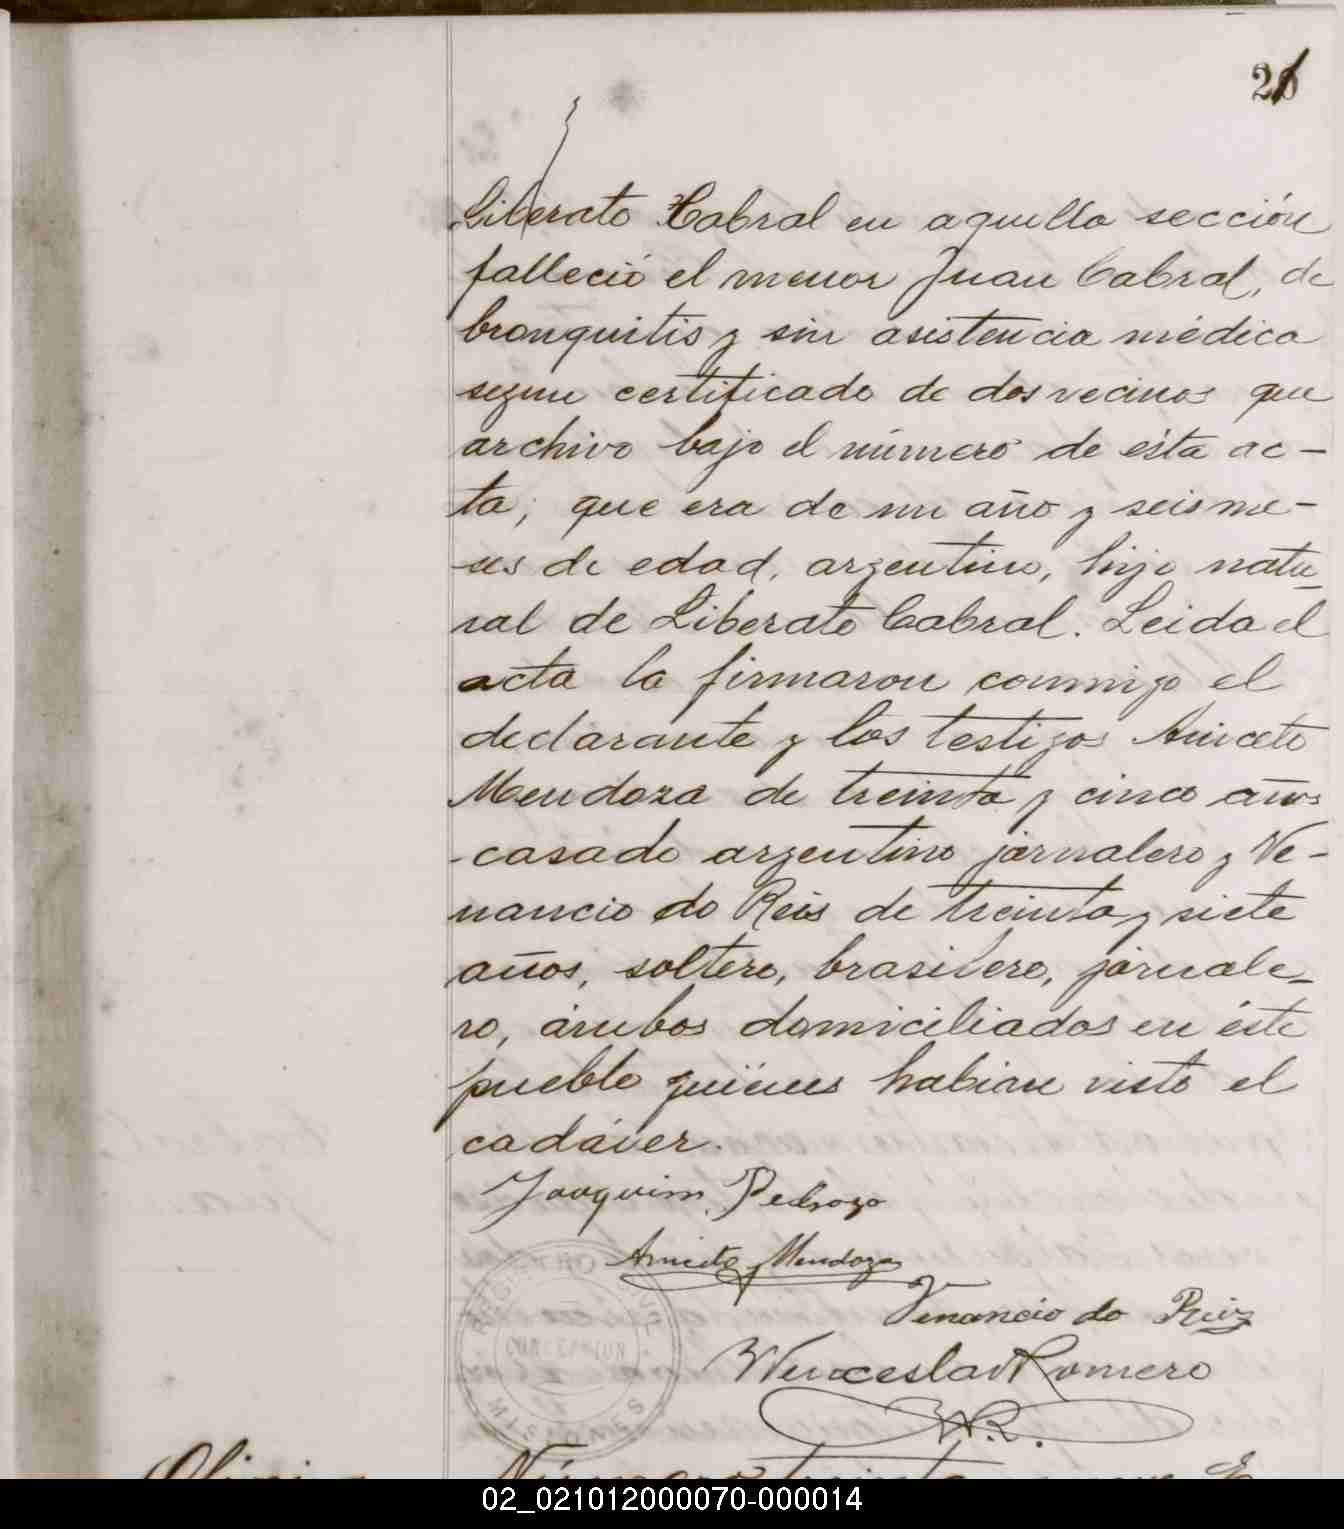 21
Liberato Cabral en aquella sección
falleció el menor Juan Cabral, de
bronquitis y sin asistencia médica
segun certificado de dos vecinos que
archivo bajo el número de ésta ac-
ta, que era de un año y seis me-
ses de edad, argentino, hijo natu-
ral de Liberato Cabral. Leida el
acta la firmaron conmigo el
declarante y los testigos Aniceto
Mendoza de treinta y cinco años
casado argentino jornalero y Ve-
nancio do Reis de treinta y siete
años, soltero, brasilero, jornale-
ro, ámbos domiciliados en éste
pueblo quiénes habian visto el
cadáver.
Joaquim Pedrozo
Aniceto Mendoza
Venancio do Reiz
Wenceslao Romero
W.R.
MISIONES
Número treinta
02_021012000070-000014